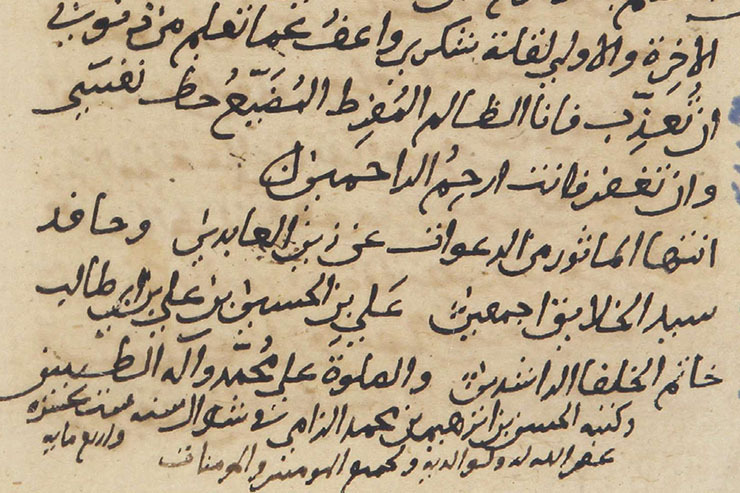 الاخرة والاولي لقلة شكري واعف عما تعلم من ذنوبي
ان تُعذِّب فانا الظالم المُفرِط المُضَيِّعُ حظ نفسي
وان تغفر فانت ارحمُ الراحمين
انتها الماثور من الدعوات عن زين العابدين وحافد
سيد الخلايق اجمعين عَلي بن الحسين بن علي بن ابي طالب
خاتم الخلفا الراشدين والصلوة علي مُحمّد وآله الطيبين
وكتبه الحسن بن ابرهيم بن محمد الزامي في شوال سنه ست عشره
واربع مايه
غفر الله له ولوالديه ولجميع المومنين والمومنات